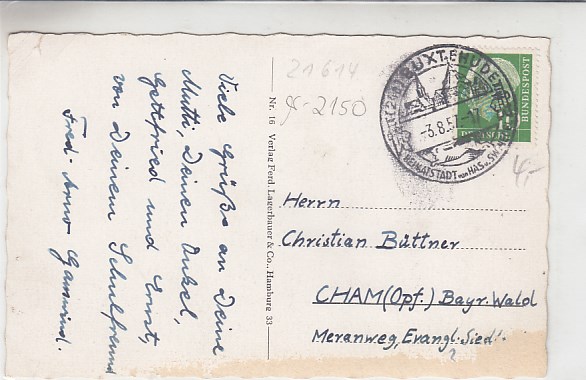 Viele Grüße an Deine
Mutti, Deinen Onkel,
Gottfried und Ernst,
von Deinem Schulfreund
Fred-Arno
Nr. 16 Verlag Ferd. Lagerbauer & Co., Hamburg 33
21614
2150
BUXTEHUDE
-3.8.57.-
HEIMATSTADT VON HAS U. SW
BUNDESPOST
4,-
Herrn
Christian Büttner
CHAM (Opf.) Bayr. Wald
Meranweg, Evangl. Siedl.
2